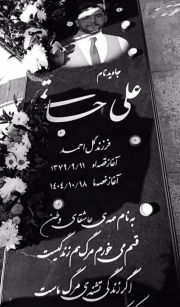 جاویدنام
علی حاتم
فرزند گل احمد
آغاز قصه ۱۳۷۹/۹/۱۱
آغاز غصه ما ۱۴۰۴/۱۰/۱۸
به نام همه‌ی عاشقای وطن
قسم می خورم مرگ هم زندگیست
اگر زندگی تشنه‌ی مرگ ماست